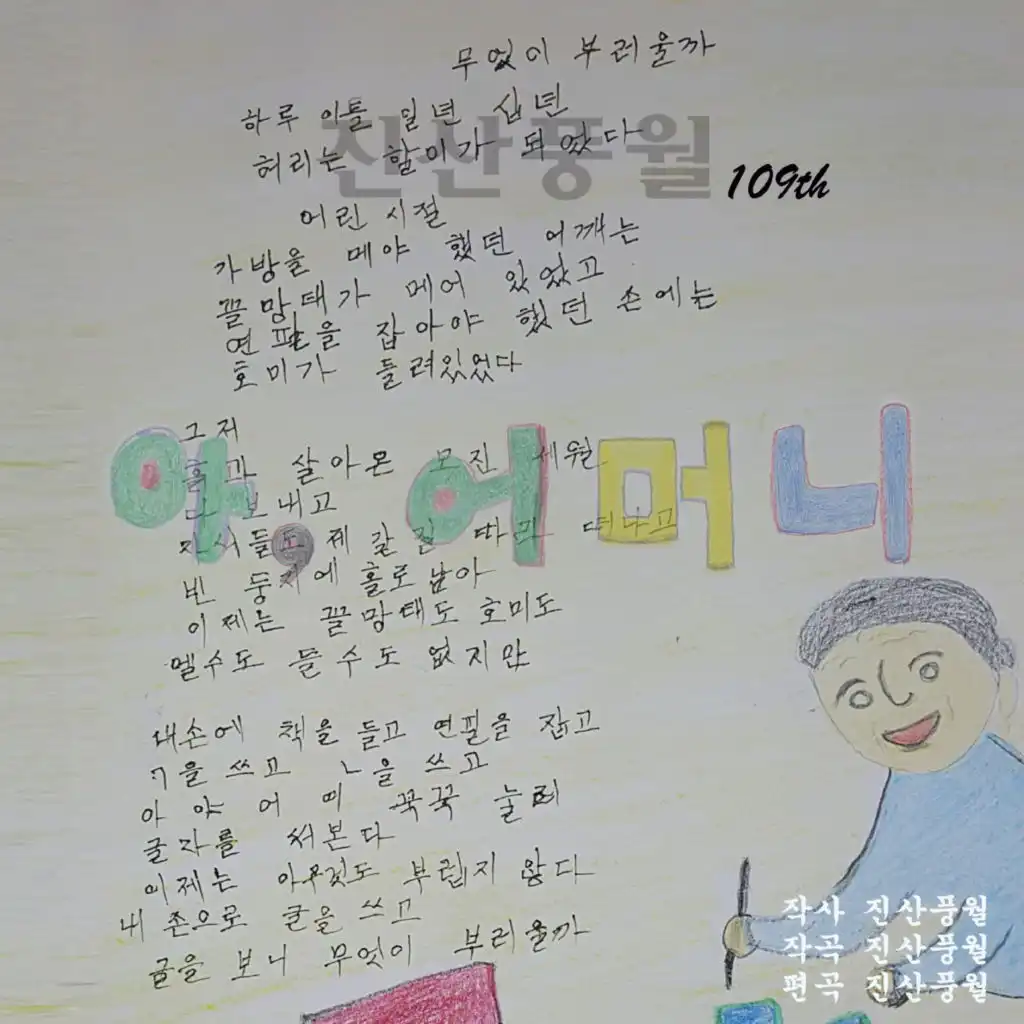 무엇이 부러울까
하루 이틀 일년 십년
허리는 할미가 되었다
진산풍월
109th
어린 시절
가방을 메야 했던 어깨는
끌망태가 메어 있었고
연필을 잡아야 했던 손에는
호미가 들려있었다
그저
흙과 살아온 모진 세월
다 보내고
자식들도 제 갈길 따라 떠나고
빈 둥지에 홀로남아
이제는 끌망태도 호미도
멜수도 들수도 없지만
야, 어머니
내손에 책을 들고 연필을 잡고
ㄱ을 쓰고 ㄴ을 쓰고
아 야 어 여 꾹꾹 눌러
글자를 써본다
이제는 아무것도 부럽지 않다
내 손으로 글을 쓰고
글을 보니 무엇이 부러울까
작사 진산풍월
작곡 진산풍월
편곡 진산풍월